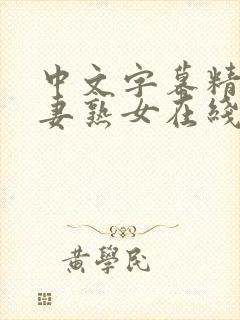 中文字幕精
妻熟女在线
黄學民